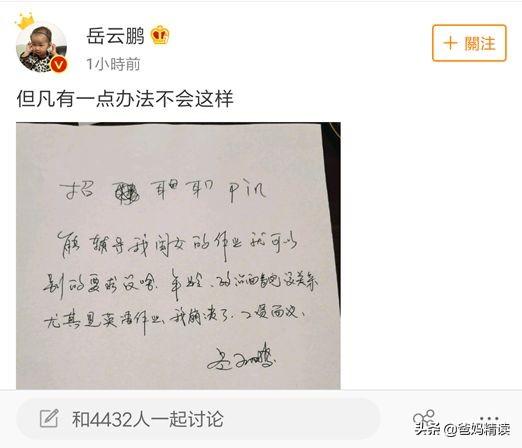 岳云鹏
1小時前
+ 關注
但凡有一点办法不会这样
招 Pin
能辅导我闺女的作业就可以
别的要求没啥.年龄、政治面貌没关系
尤其是英语作业、我崩溃了、
岳云鹏
和4432人一起讨论
头条 @爸妈精读